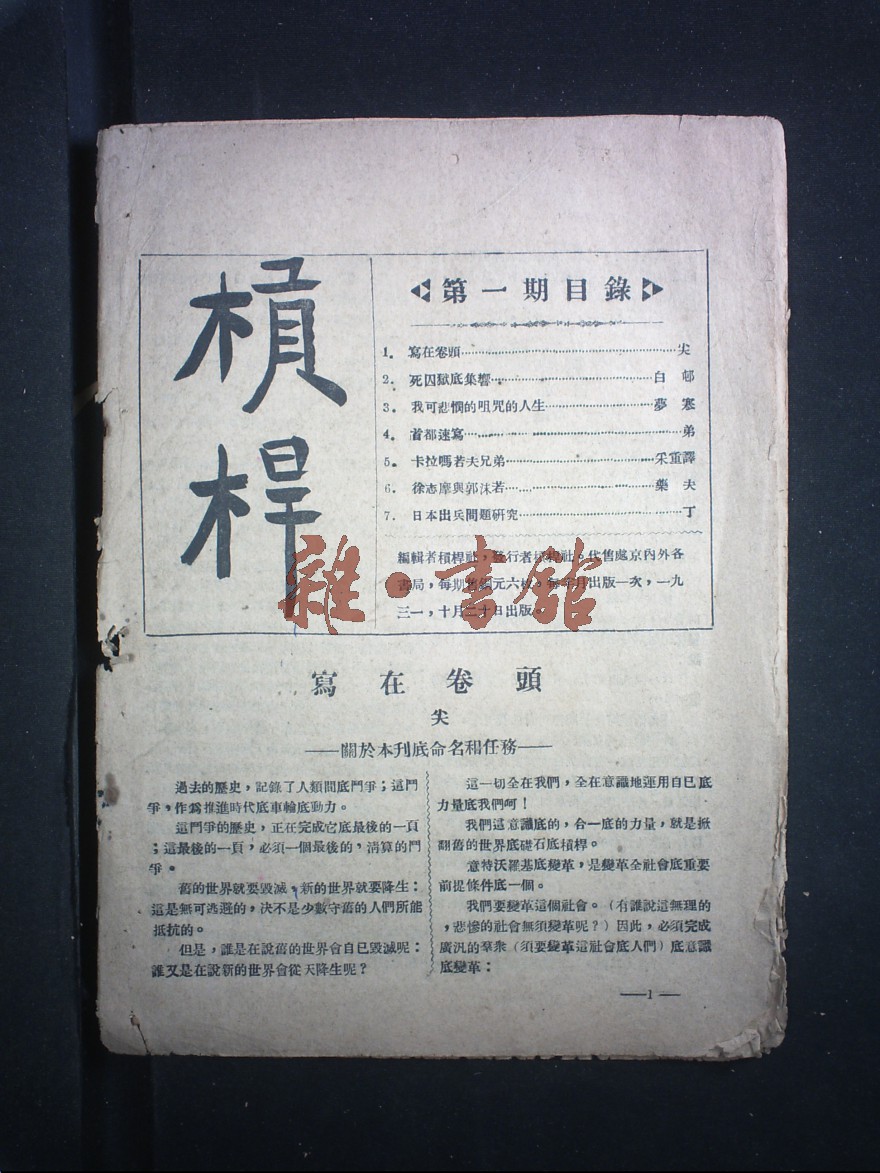 槓桿
第一期目錄
1. 寫在卷頭 尖
2. 死囚獄底集響 白邨
3. 我可悲憫的咀咒的人生 夢寒
4. 首都速寫 弟
5. 卡拉嗎若夫兄弟 采重譯
6. 徐志摩與郭沫若 藥夫
7. 日本出兵問題研究 丁
編輯者槓桿社，發行者槓桿社。代售處京內外各
書局，每期售銅元六枚。每半月出版一次，一九
三一，十月二十日出版。
雜·書館
寫在卷頭
尖
——關於本刋底命名和任務——
過去的歷史，記錄了人類間底鬥爭；這鬥
爭，作爲推進時代底車輪底動力。
這鬥爭的歷史，正在完成它底最後的一頁
；這最後的一頁，必須一個最後的，淸算的鬥
爭。
舊的世界就要毀滅，新的世界就要降生：
這是無可逃避的，决不是少數守舊的人們所能
抵抗的。
但是，誰是在說舊的世界會自已毀滅呢：
誰又是在說新的世界會從天降生呢？
這一切全在我們，全在意識地運用自已底
力量底我們呵！
我們這意識底的，合一底的力量，就是掀
翻舊的世界底礎石底槓桿。
意特沃羅基底變革，是變革全社會底重要
前提條件底一個。
我們要變革這個社會。（有誰說這無理的
，悲慘的社會無須變革呢？）因此，必須完成
廣汎的羣衆（須要變革這社會底人們）底意識
底變革：
—1—